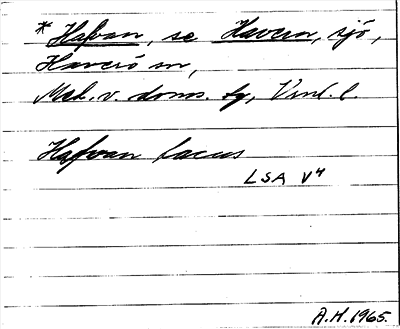 * Hafvan, se Havern, sjö,
Haverö sn,
Med. v. doms. tg, Vnl. l.
Hafvan Lacus
LSA V4
A.H. 1965.